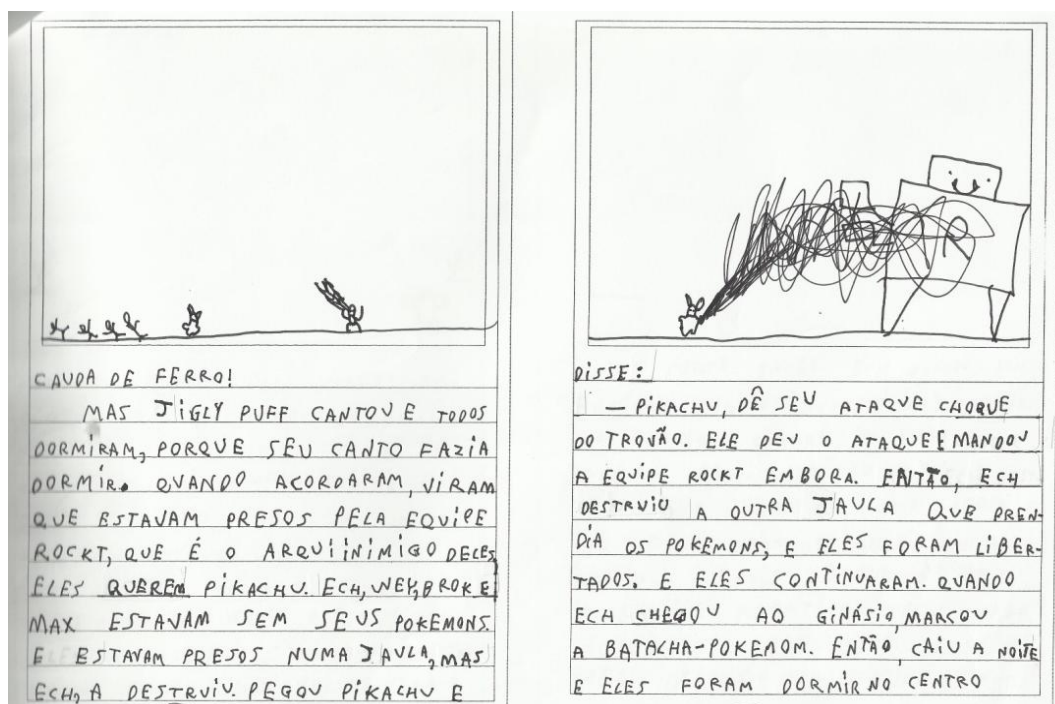 CAUDA DE FERRO!
MAS JIGLY PUFF CANTOU E TODOS
DORMIRAM, PORQUE SEU CANTO FAZIA
DORMIR. QUANDO ACORDARAM, VIRAM
QUE ESTAVAM PRESOS PELA EQUIPE
ROCKT, QUE É O ARQUIINIMIGO DELES,
ELES QUEREM PIKACHU. ECH, WEY, BROK E
MAX ESTAVAM SEM SEUS POKEMONS.
E ESTAVAM PRESOS NUMA JAULA, MAS
ECH, A DESTRUIU. PEGOU PIKACHU E
R
DISSE:
— PIKACHU, DÊ SEU ATAQUE CHOQUE
DO TROVÃO. ELE DEU O ATAQUE E MANDOU
A EQUIPE ROCKT EMBORA. ENTÃO, ECH
DESTRUIU A OUTRA JAULA QUE PREN-
DIA OS POKEMONS, E ELES FORAM LIBER-
TADOS. E ELES CONTINUARAM. QUANDO
ECH CHEGOU AO GINÁSIO, MARCOU
A BATACHA-POKEMOM. ENTÃO, CAIU A NOITE
E ELES FORAM DORMIR NO CENTRO